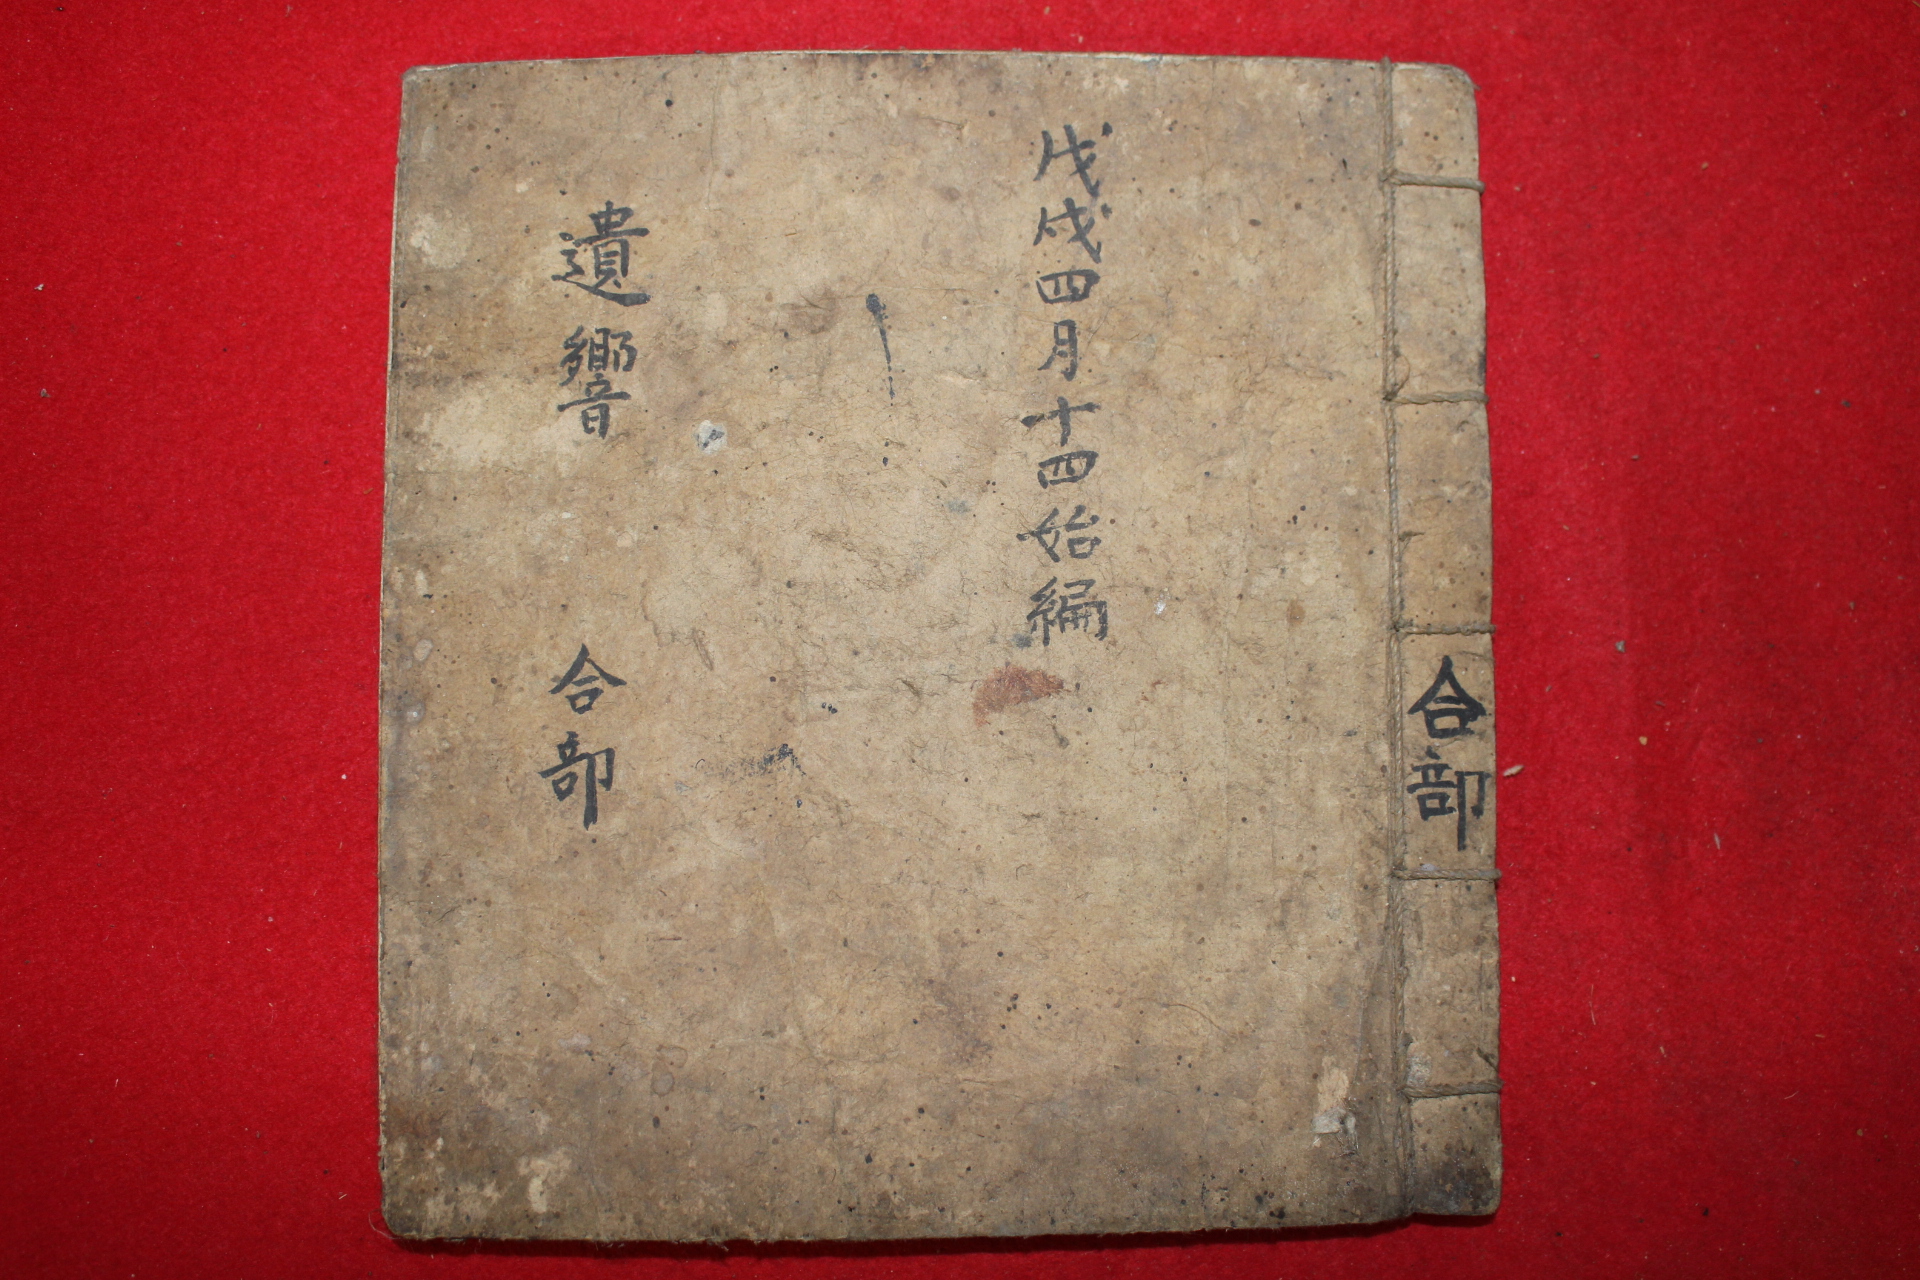 合部
戊戌四月十四始編
遺響 合部